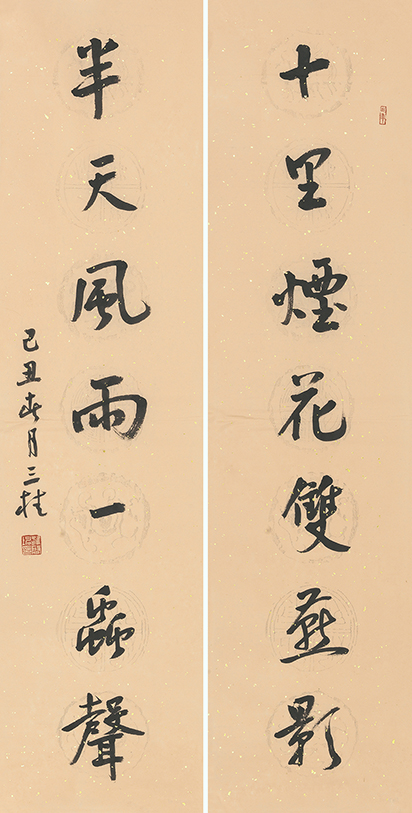 十里煙花雙燕影
半天風雨一蟲聲
己丑春月三桂